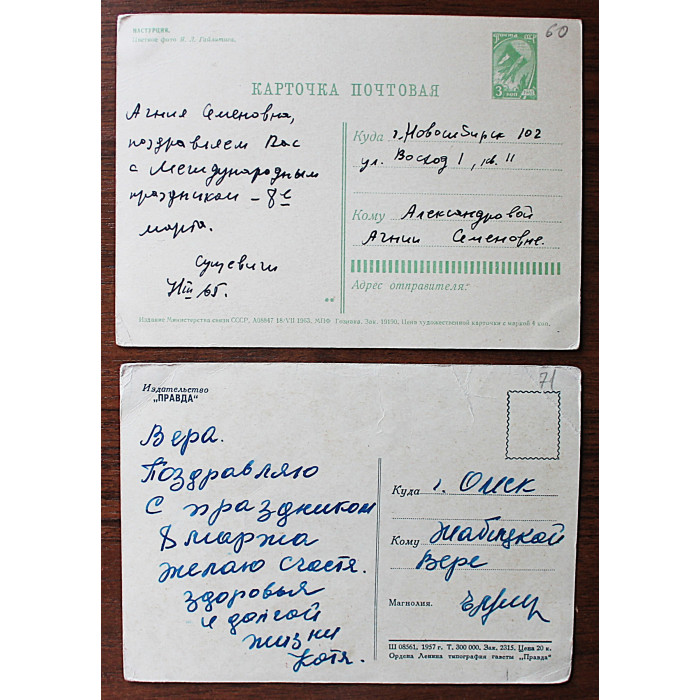 НАСТУРЦИЯ.
60
ПОЧТА СССР
3 коп
КАРТОЧКА ПОЧТОВАЯ
Агния Семеновна,
поздравляем Вас
с Международным
праздником – 8е
марта.
Куда г. Новосибирск 102
ул. Восход 1, кв. 11
Кому Александровой
Агнии Семеновне.
Адрес отправителя:
Издание Министерства связи СССР, 18/VII 1963, МПФ Гознака. Зак. Цена художественной карточки с маркой 4 коп.
Издательство
„ПРАВДА“
71
Вера.
Поздравляю
с праздником
8 марта
желаю счастя.
здоровья
и долгой
жизни
Котя.
Куда г. Омск
Кому Жабицкой
Вере
Магнолия.
Ш 08561, 1957 г. Т. 300 000. Зак. 2315. Цена 20 к.
Ордена Ленина типография газеты „Правда“